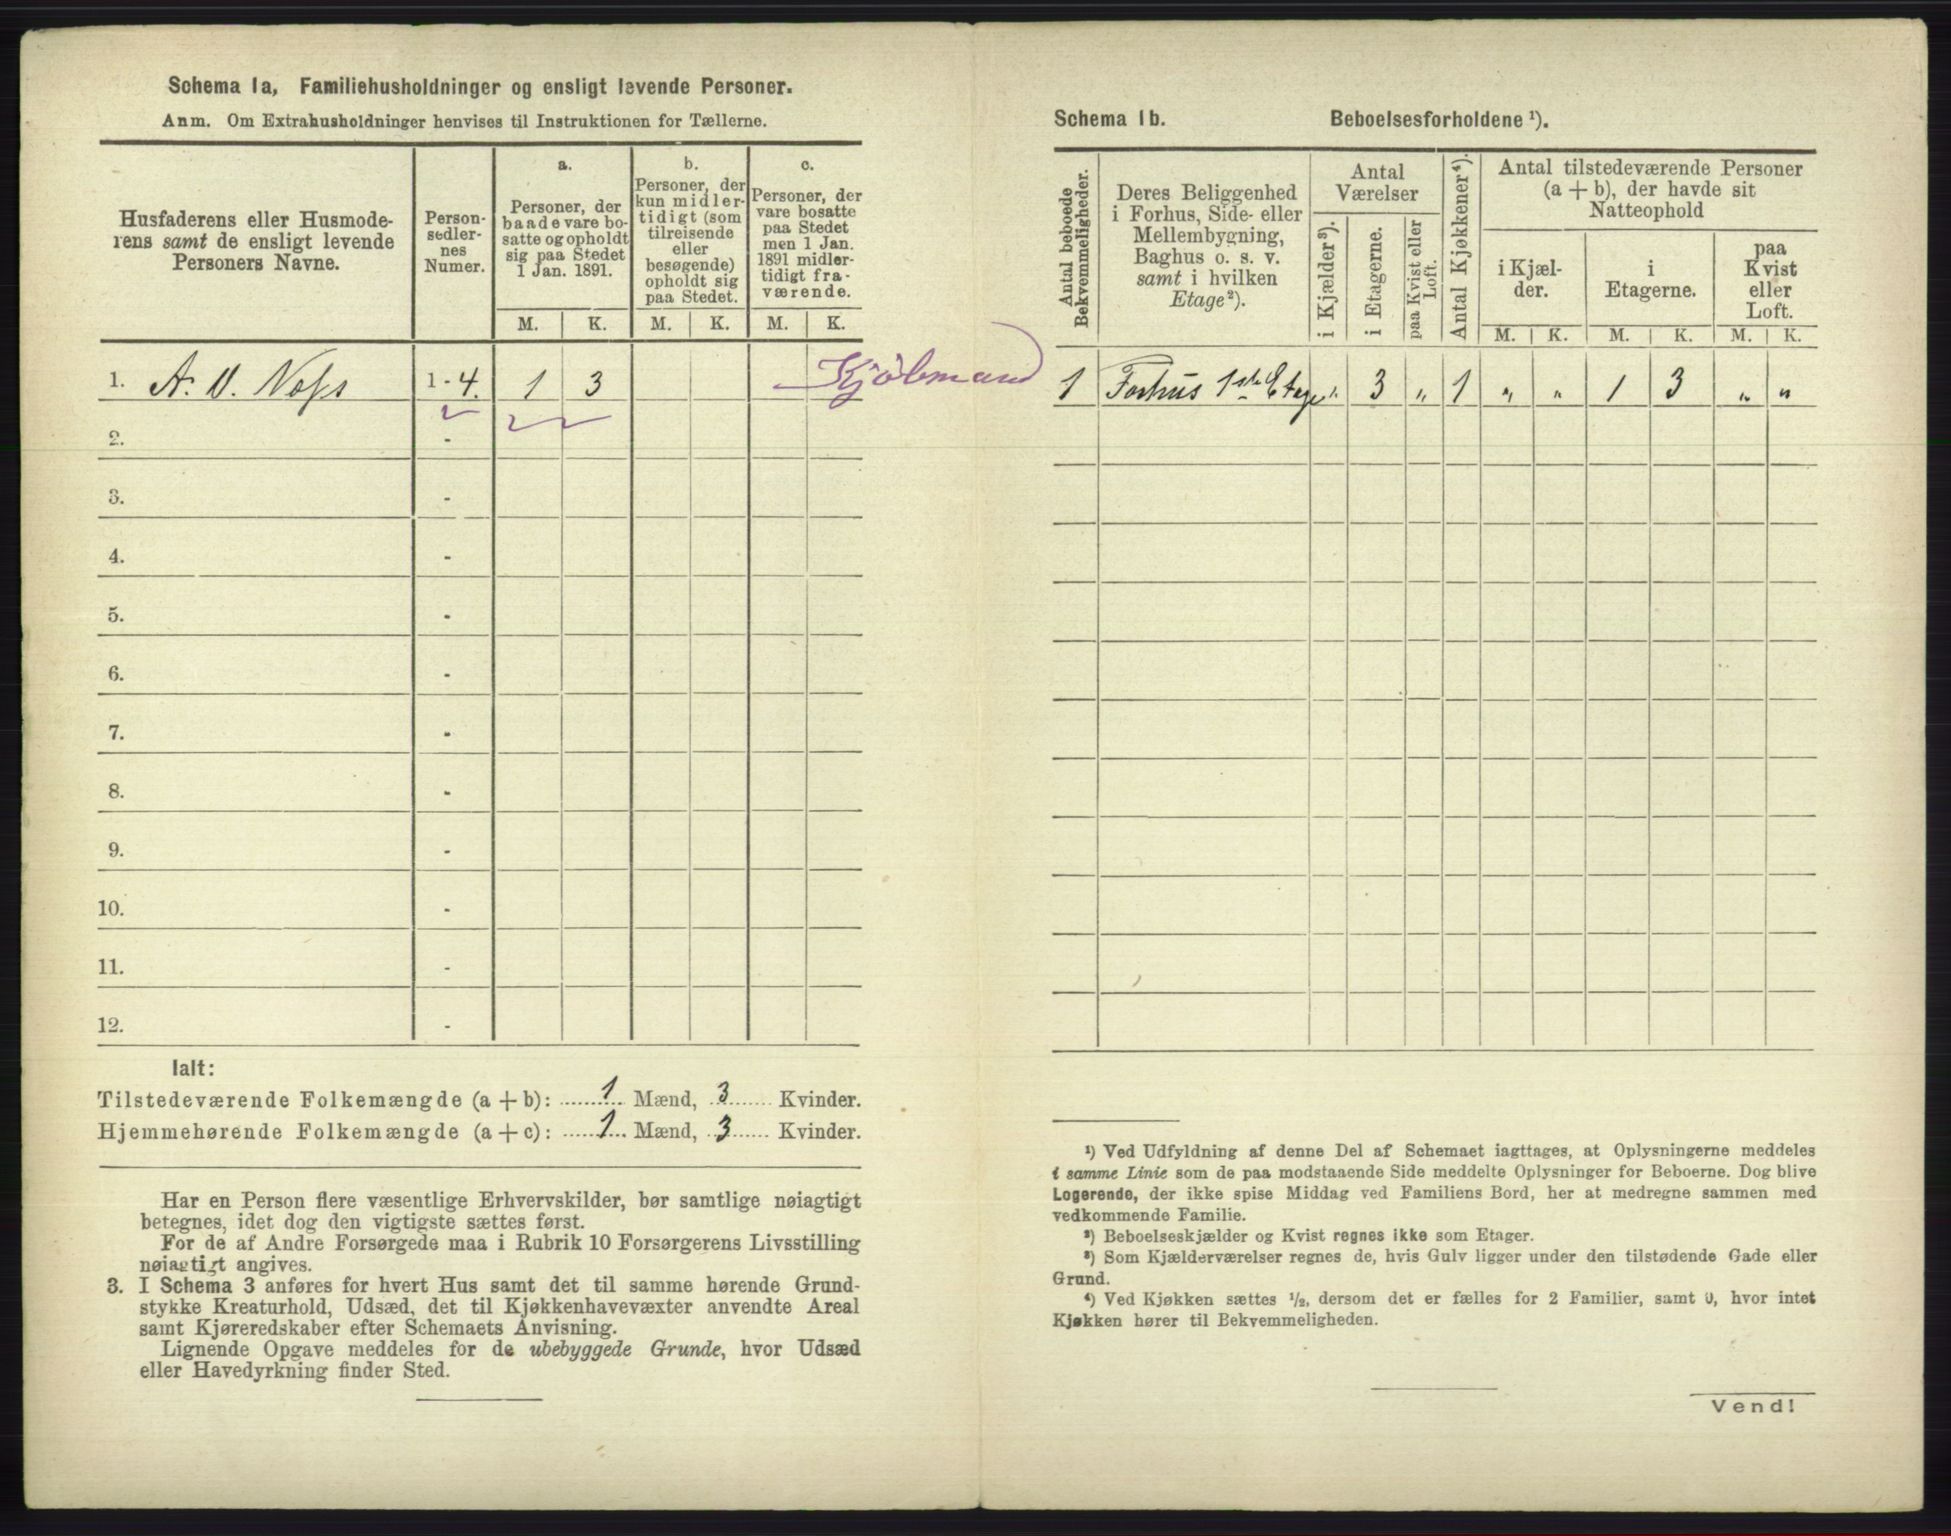 Schema Ia, Familiehusholdninger og ensligt levende Personer.
Anm. Om Extrahusholdninger henvises til Instruktionen for Tællerne.
Husfaderens eller Husmode-
rens samt de ensligt levende
Personers Navne.
Person-
sedler-
nes
Numer.
a.
Personer, der
baade vare bo-
satte og opholdt
sig paa Stedet
1 Jan. 1891.
b.
Personer, der
kun midler-
tidigt (som
tilreisende
eller
besøgende)
opholdt sig
paa Stedet.
c.
Personer, der
vare bosatte
paa Stedet
men 1 Jan.
1891 midler-
tidigt fra-
værende.
M. K. M. K. M. K.
1. A. V. Noss 1-4. 1 3 Kjöbmand
2. -
3. -
4. -
5. -
6. -
7. -
8. -
9. -
10. -
11. -
12. -
Ialt:
Tilstedeværende Folkemængde (a + b): 1 Mænd, 3 Kvinder.
Hjemmehørende Folkemængde (a + c): 1 Mænd, 3 Kvinder.
Har en Person flere væsentlige Erhvervskilder, bør samtlige nøiagtigt
betegnes, idet dog den vigtigste sættes først.
For de af Andre Forsørgede maa i Rubrik 10 Forsørgerens Livsstilling
nøiagtigt angives.
3. I Schema 3 anføres for hvert Hus samt det til samme hørende Grund-
stykke Kreaturhold, Udsæd, det til Kjøkkenhavevæxter anvendte Areal
samt Kjøreredskaber efter Schemaets Anvisning.
Lignende Opgave meddeles for de ubebyggede Grunde, hvor Udsæd
eller Havedyrkning finder Sted.
Schema Ib. Beboelsesforholdene ¹).
Antal beboede
Bekvemmeligheder.
Deres Beliggenhed
i Forhus, Side- eller
Mellembygning,
Baghus o. s. v.
samt i hvilken
Etage²).
Antal
Værelser
i Kjælder³).
i Etagerne.
paa Kvist eller
Loft.
Antal Kjøkkener⁴).
Antal tilstedeværende Personer
(a + b), der havde sit
Natteophold
i Kjæl-
der.
i
Etagerne.
paa
Kvist
eller
Loft.
M. K. M. K. M. K.
1 Forhus 1ste Etage " 3 " 1 " " 1 3 " "
¹) Ved Udfyldning af denne Del af Schemaet iagttages, at Oplysningerne meddeles
i samme Linie som de paa modstaaende Side meddelte Oplysninger for Beboerne. Dog blive
Logerende, der ikke spise Middag ved Familiens Bord, her at medregne sammen med
vedkommende Familie.
²) Beboelseskjælder og Kvist regnes ikke som Etager.
³) Som Kjælderværelser regnes de, hvis Gulv ligger under den tilstødende Gade eller
Grund.
⁴) Ved Kjøkken sættes ½, dersom det er fælles for 2 Familier, samt 0, hvor intet
Kjøkken hører til Bekvemmeligheden.
Vend!